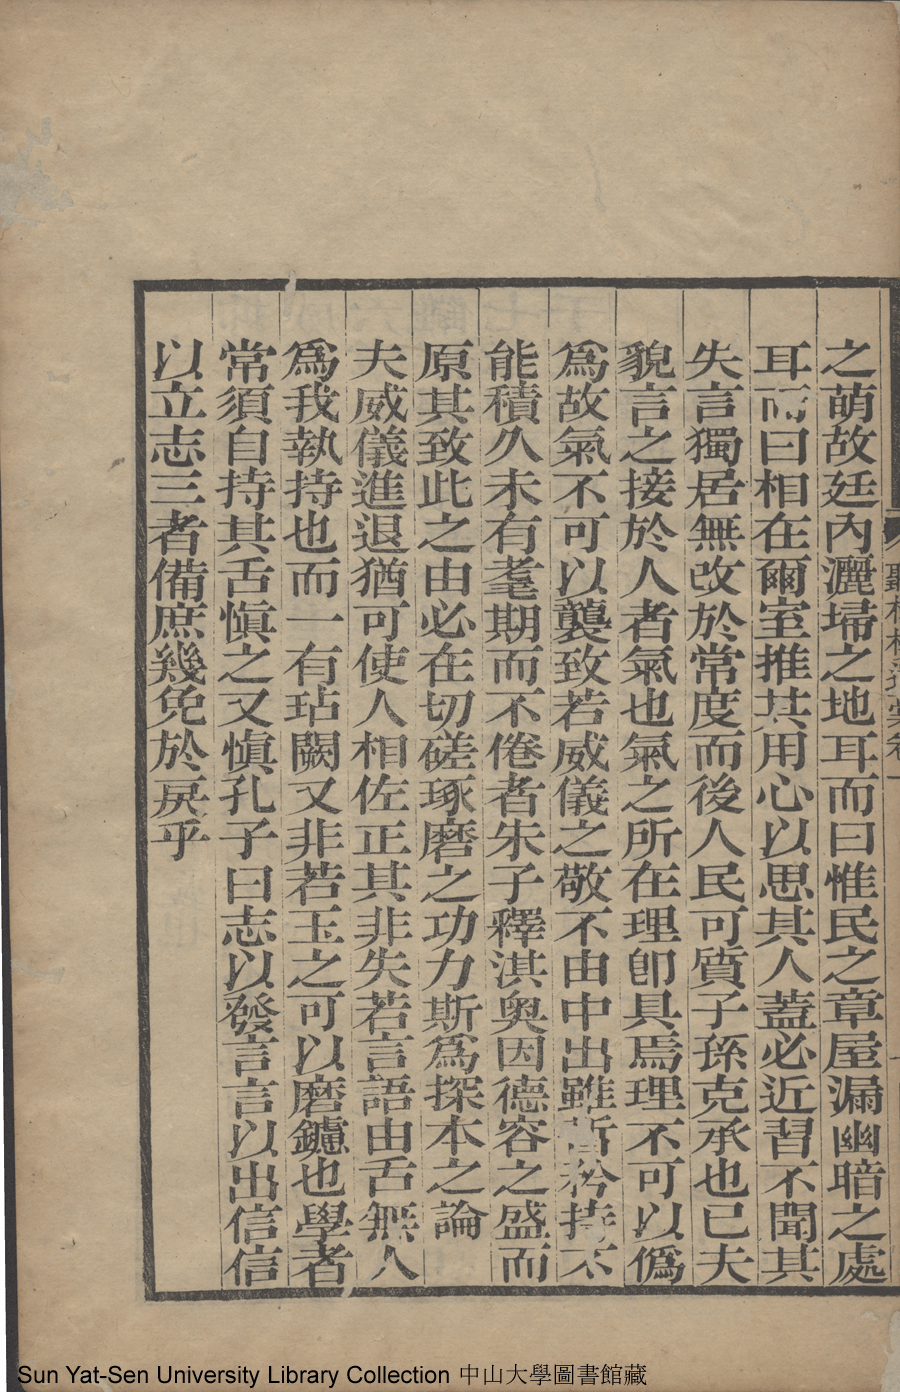 之萌故廷內灑埽之地耳而曰惟民之章屋漏幽暗之處
耳而曰相在爾室推其用心以思其人蓋必近習不聞其
失言獨居無改於常度而後人民可質子孫克承也已夫
貌言之接於人者氣也氣之所在理卽具焉理不可以僞
爲故氣不可以襲致若威儀之敬不由中出雖暫矜持不
能積久未有耄期而不倦者朱子釋淇奥因德容之盛而
原其致此之由必在切磋琢磨之功力斯爲探本之論
夫威儀進退猶可使人相佐正其非失若言語由舌無人
爲我執持也而一有玷闕又非若玉之可以磨鑢也學者
常須自持其舌愼之又愼孔子曰志以發言言以出信信
以立志三者備庶幾免於戾乎
Sun Yat-Sen University Library Collection 中山大學圖書館藏